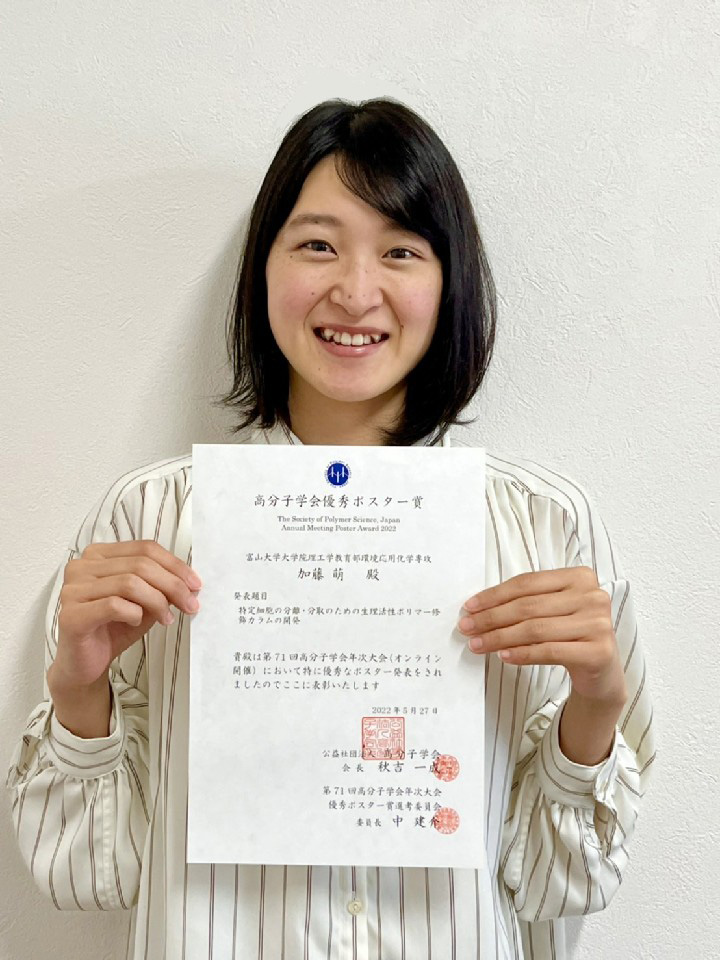 高分子学会優秀ポスター賞
The Society of Polymer Science, Japan
Annual Meeting Poster Award 2022
富山大学大学院理工学教育部環境応用化学専攻
加藤 萌 殿
発表題目
特定細胞の分離・分取のための生理活性ポリマー修
飾カラムの開発
貴殿は第71回高分子学会年次大会(オンライン
開催)において特に優秀なポスター発表をされ
ましたのでここに表彰いたします
2022年5月27日
公益社団法人 高分子学会
会長 秋吉 一成
第71回高分子学会年次大会
優秀ポスター賞選考委員会
委員長 中 建介